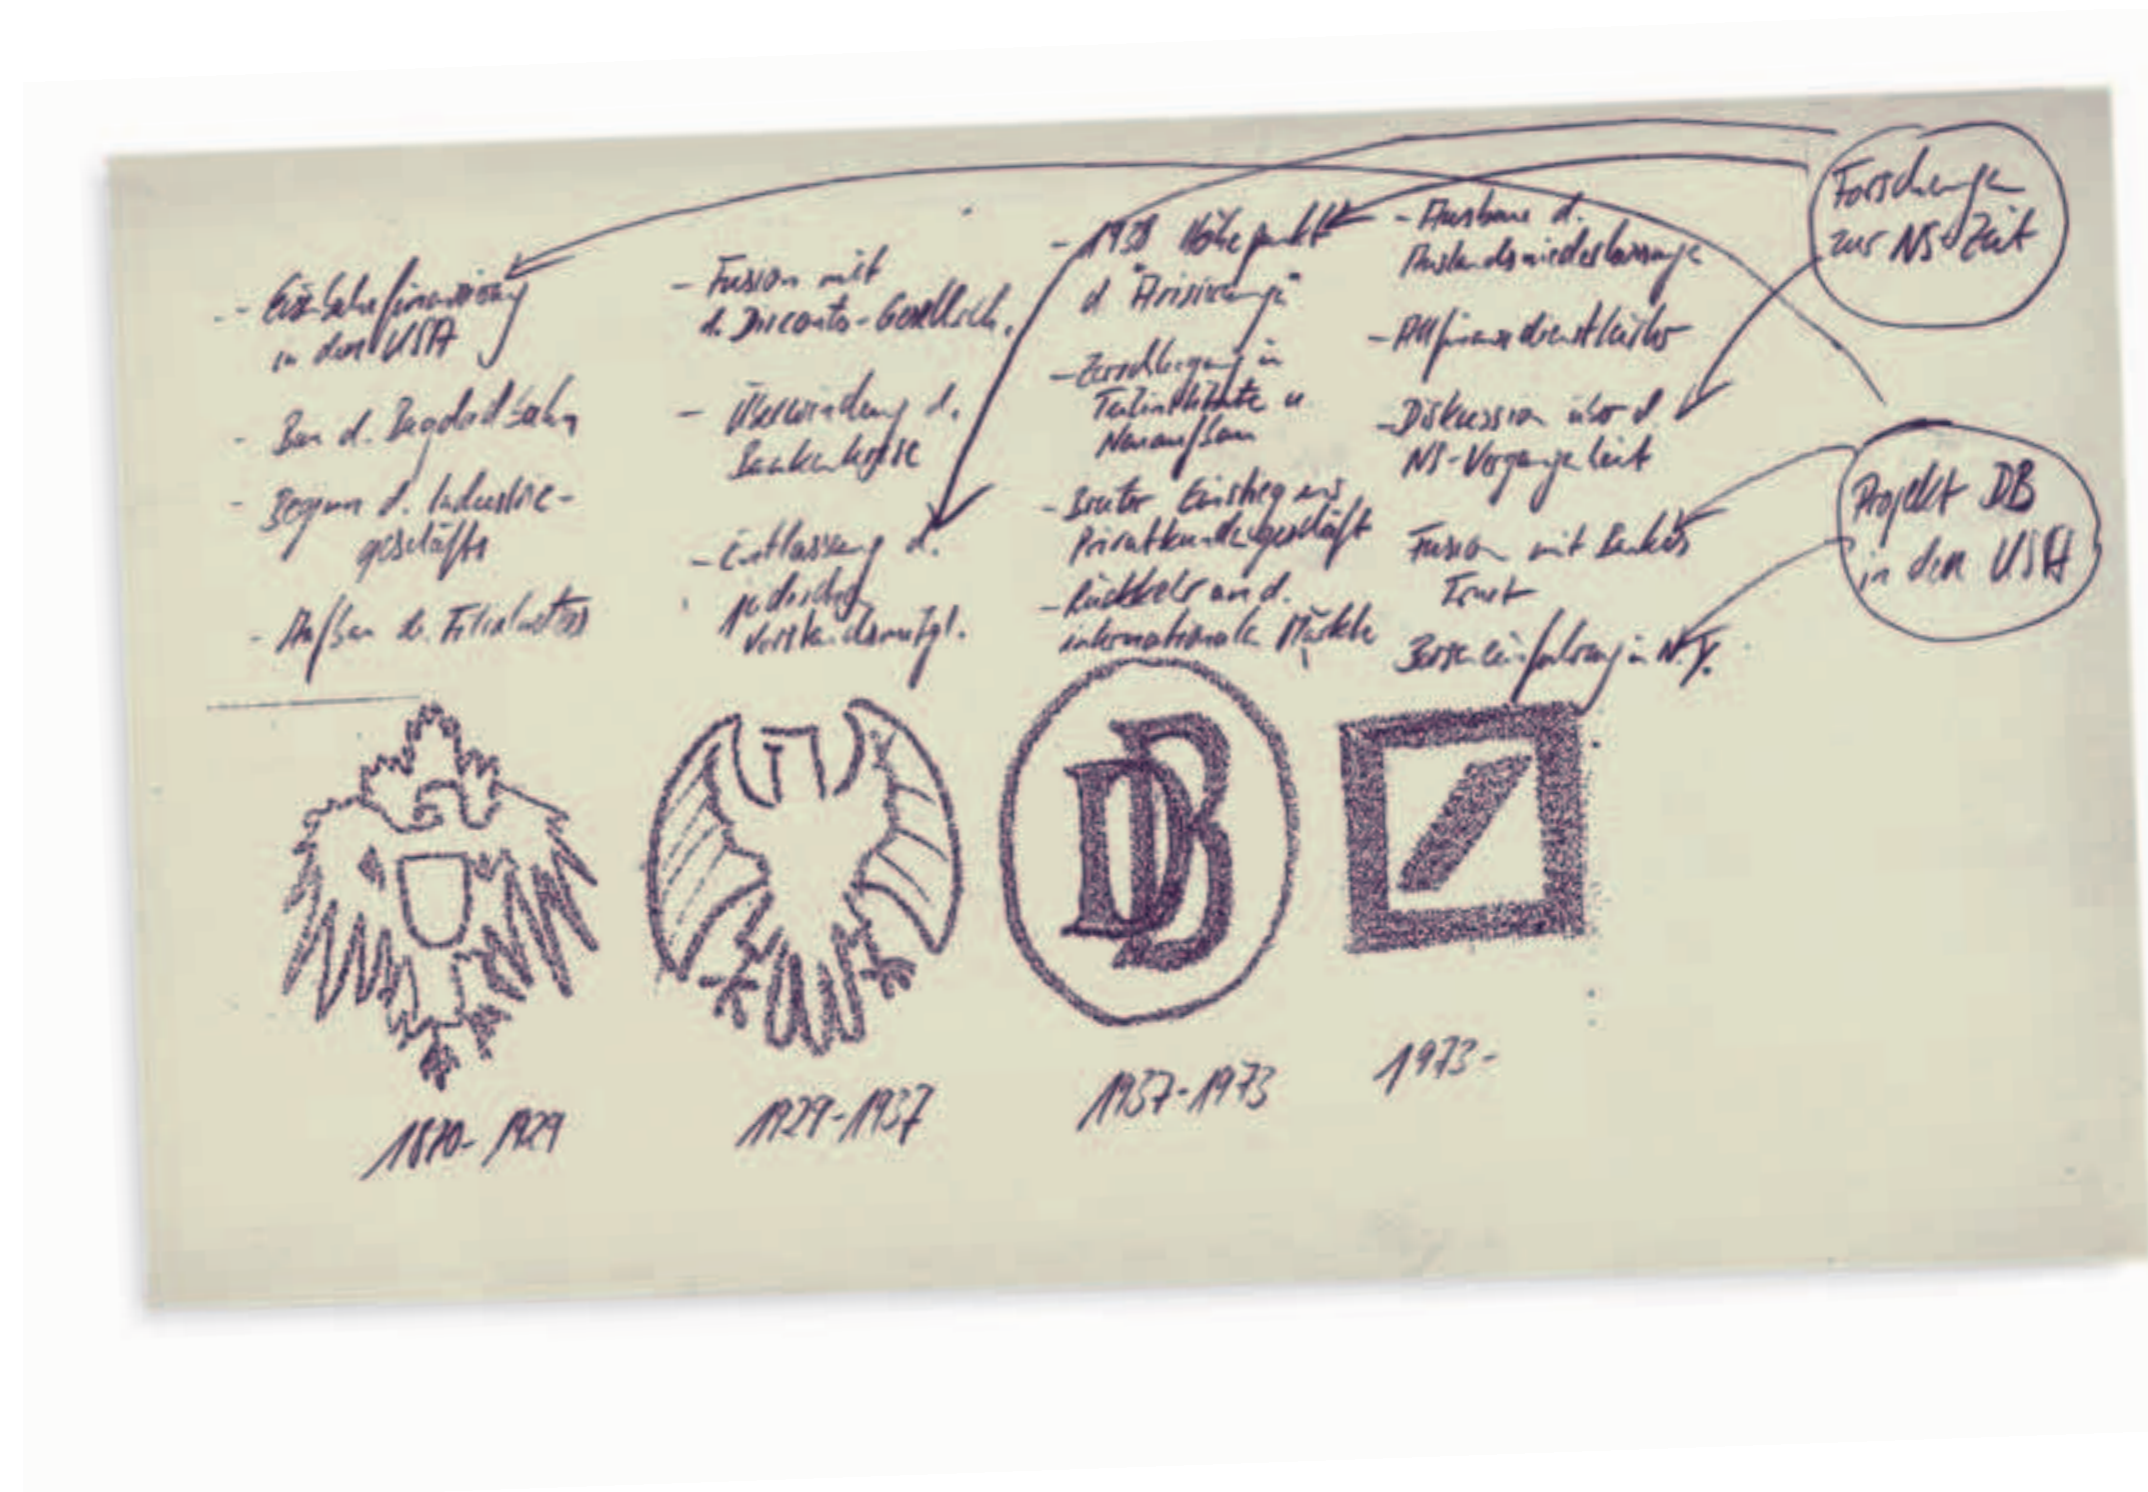 - Eisenbahnfinanzierung
in den USA
- Bau d. Bagdadbahn
- Beginn d. Industrie-
geschäfts
- Aufbau d. Filialnetzes
1870-1929
- Fusion mit
d. Disconto-Gesellsch.
- Überwindung d.
Bankenkrise
- Entlassung d.
jüdischen
Vorstandsmitgl.
1929-1937
- 1938 Höhepunkt
d "Arisierung"
- Zerschlagung in
Teilinstitute u.
Neuaufbau
- Breiter Einstieg ins
Privatkundengeschäft
- Rückkehr an d.
internationale Märkte
DB
1937-1973
- Ausbau d.
Auslandsniederlassunge
- Allfinanzdienstleister
- Diskussion über d.
NS-Vergangenheit
Fusion mit Bankers
Trust
Börseneinführung in N.Y.
1973-
Forschungen
zur NS-Zeit
Projekt DB
in den USA